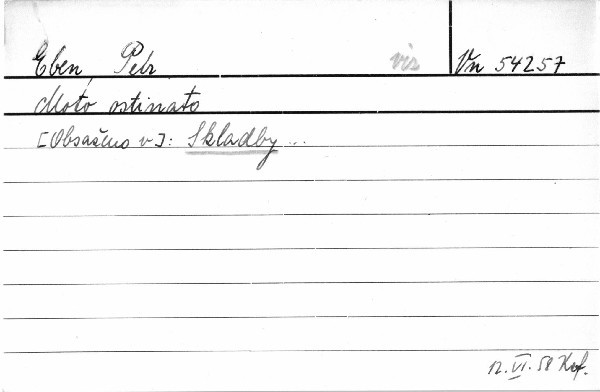 Eben, Petr viz Vn 54257
Moto ostinato
[Obsaženo v]: Skladby...
12. VI. 58